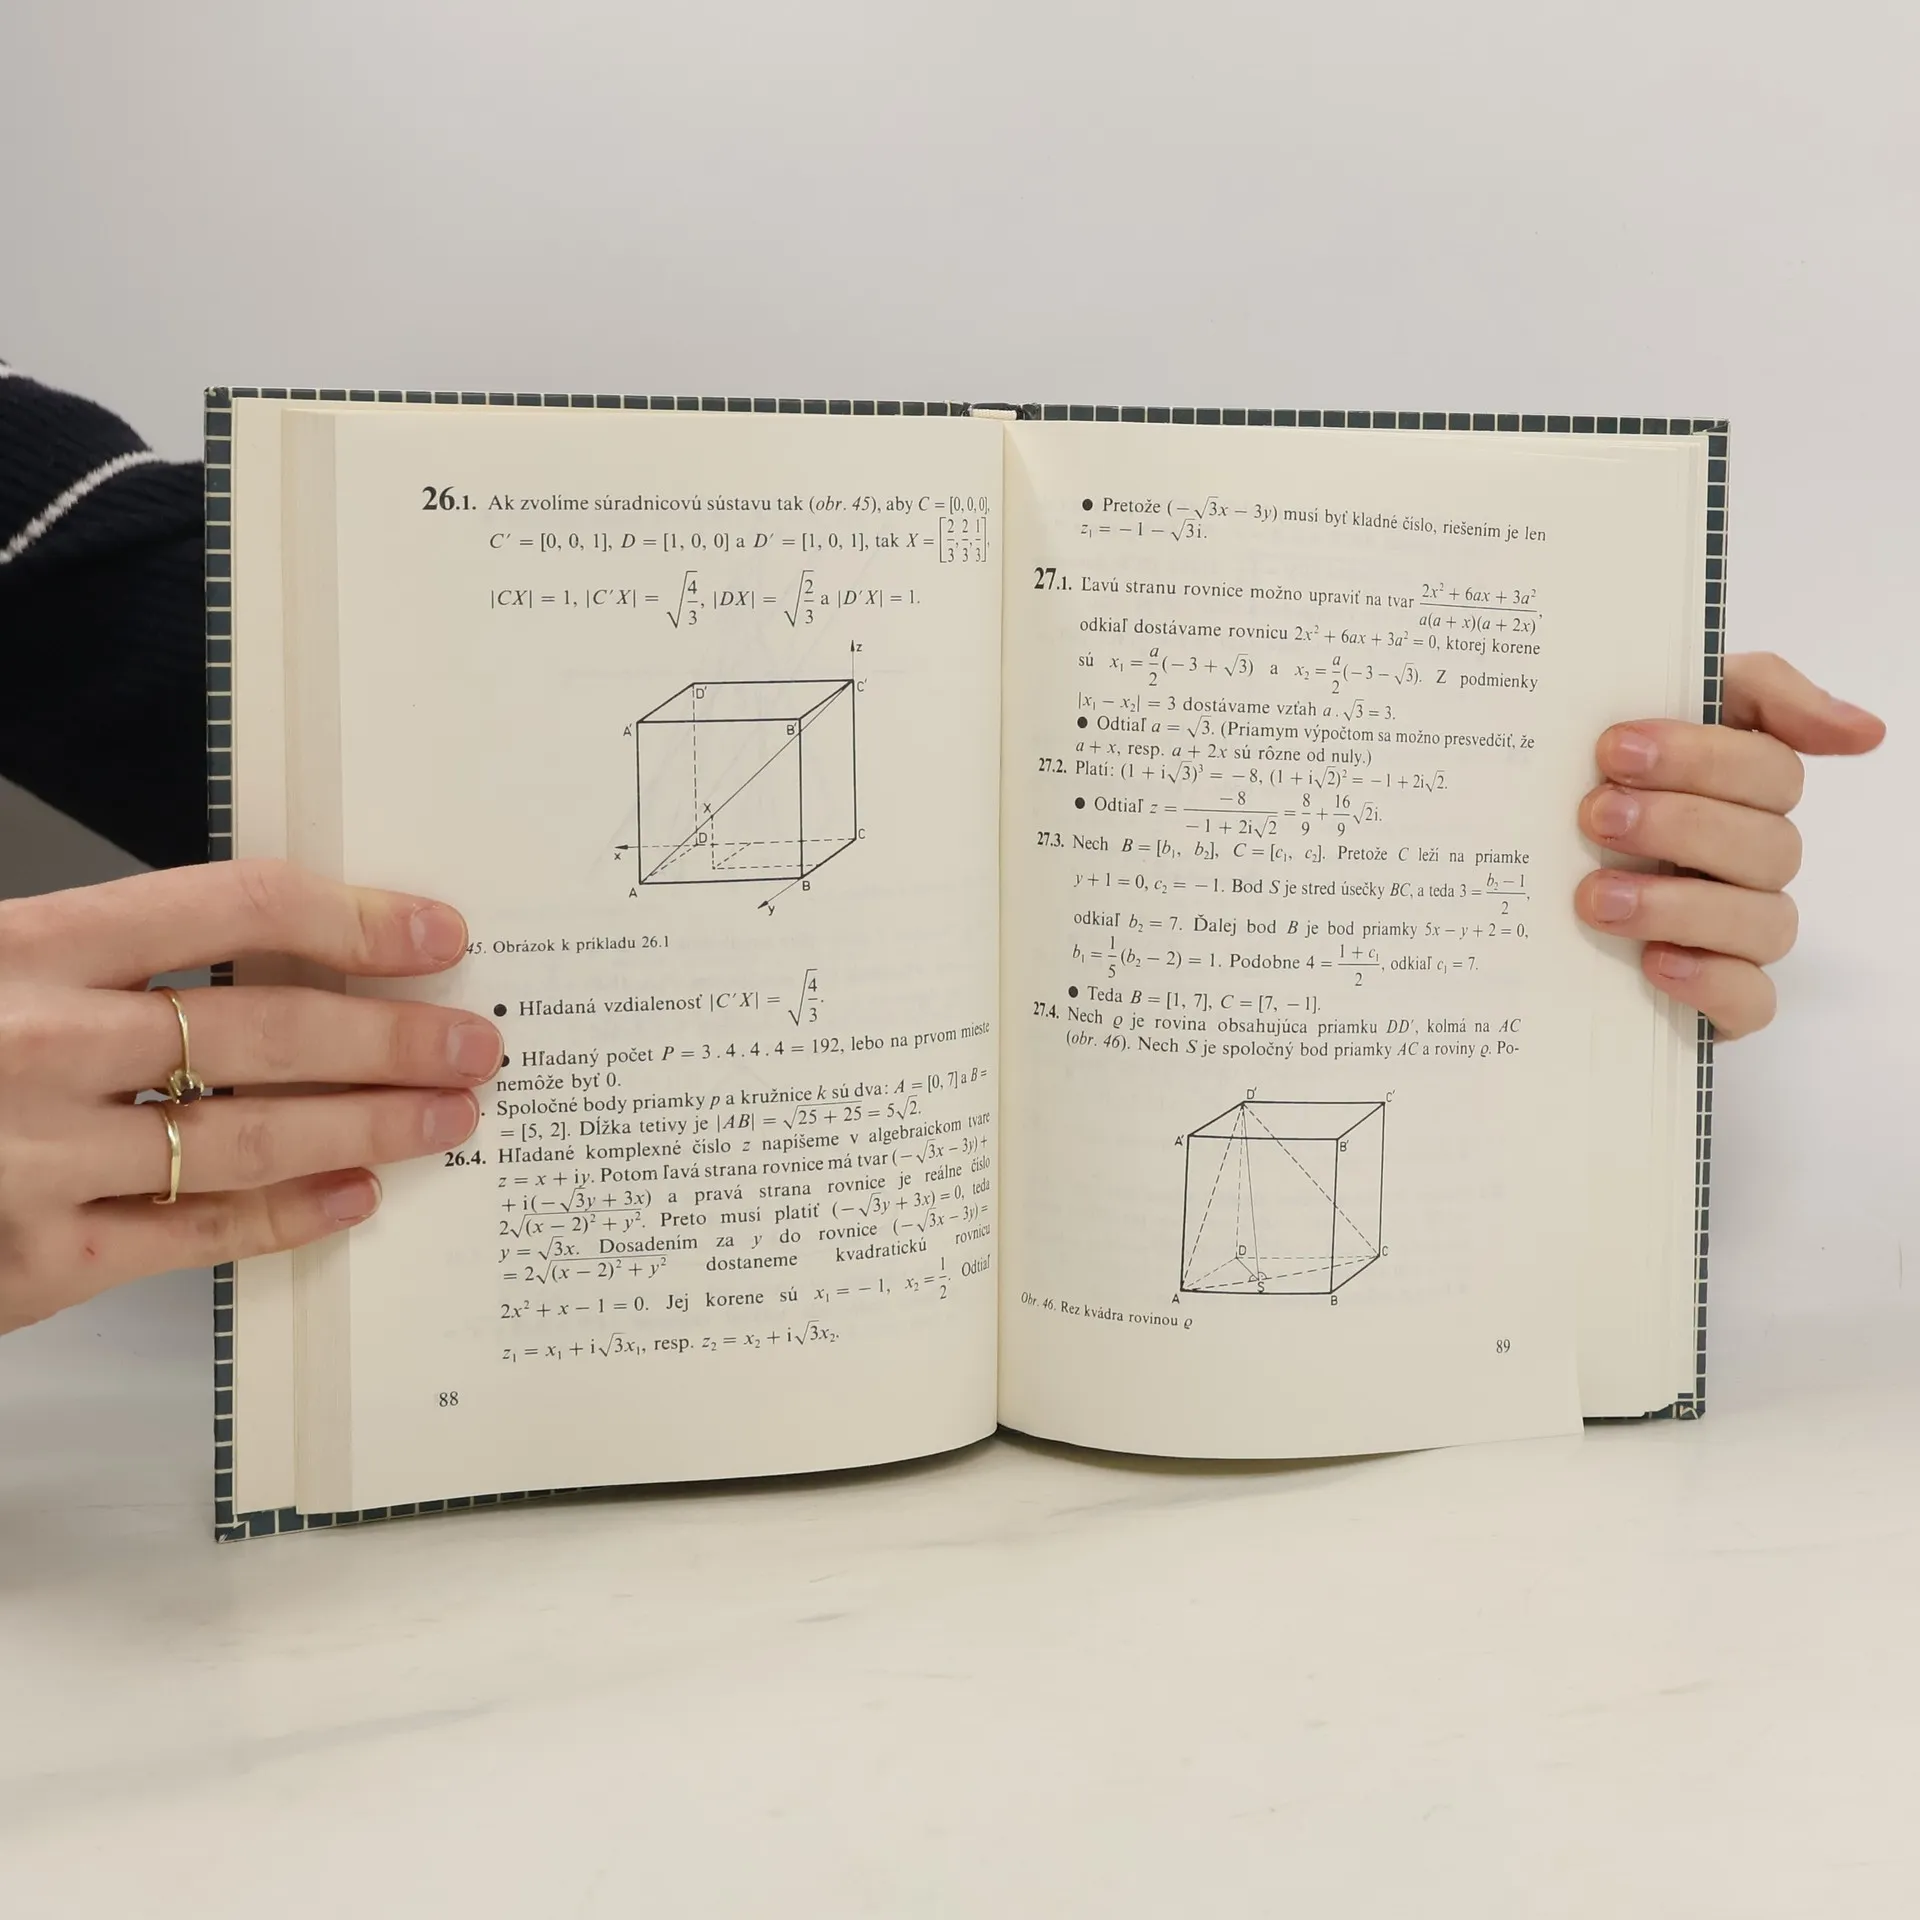 26.1. Ak zvolíme súradnicovú sústavu tak (obr. 45), aby C = [0, 0, 0],
C′ = [0, 0, 1], D = [1, 0, 0] a D′ = [1, 0, 1], tak X = [2/3, 2/3, 1/3],
|CX| = 1, |C′X| = √(4/3), |DX| = √(2/3) a |D′X| = 1.
z
D′
C′
A′
B′
X
D
C
x
A
B
y
45. Obrázok k príkladu 26.1
● Hľadaná vzdialenosť |C′X| = √(4/3).
● Hľadaný počet P = 3 . 4 . 4 . 4 = 192, lebo na prvom mieste
nemôže byť 0.
. Spoločné body priamky p a kružnice k sú dva: A = [0, 7] a B =
= [5, 2]. Dĺžka tetivy je |AB| = √(25 + 25) = 5√2.
26.4. Hľadané komplexné číslo z napíšeme v algebraickom tvare
z = x + iy. Potom ľavá strana rovnice má tvar (−√3x − 3y) +
+ i(−√3y + 3x) a pravá strana rovnice je reálne číslo
2√((x − 2)² + y²). Preto musí platiť (−√3y + 3x) = 0, teda
y = √3x. Dosadením za y do rovnice (−√3x − 3y) =
= 2√((x − 2)² + y²) dostaneme kvadratickú rovnicu
2x² + x − 1 = 0. Jej korene sú x₁ = −1, x₂ = 1/2. Odtiaľ
z₁ = x₁ + i√3x₁, resp. z₂ = x₂ + i√3x₂.
88
● Pretože (−√3x − 3y) musí byť kladné číslo, riešením je len
z₁ = −1 − √3i.
27.1. Ľavú stranu rovnice možno upraviť na tvar (2x² + 6ax + 3a²)/(a(a + x)(a + 2x)),
odkiaľ dostávame rovnicu 2x² + 6ax + 3a² = 0, ktorej korene
sú x₁ = a/2(−3 + √3) a x₂ = a/2(−3 − √3). Z podmienky
|x₁ − x₂| = 3 dostávame vzťah a . √3 = 3.
● Odtiaľ a = √3. (Priamym výpočtom sa možno presvedčiť, že
a + x, resp. a + 2x sú rôzne od nuly.)
27.2. Platí: (1 + i√3)³ = −8, (1 + i√2)² = −1 + 2i√2.
● Odtiaľ z = −8/(−1 + 2i√2) = 8/9 + 16/9 √2i.
27.3. Nech B = [b₁, b₂], C = [c₁, c₂]. Pretože C leží na priamke
y + 1 = 0, c₂ = −1. Bod S je stred úsečky BC, a teda 3 = (b₂ − 1)/2,
odkiaľ b₂ = 7. Ďalej bod B je bod priamky 5x − y + 2 = 0,
b₁ = 1/5(b₂ − 2) = 1. Podobne 4 = (1 + c₁)/2, odkiaľ c₁ = 7.
● Teda B = [1, 7], C = [7, −1].
27.4. Nech ϱ je rovina obsahujúca priamku DD′, kolmá na AC
(obr. 46). Nech S je spoločný bod priamky AC a roviny ϱ. Po-
D′
C′
A′
B′
D
C
S
A
B
Obr. 46. Rez kvádra rovinou ϱ
89